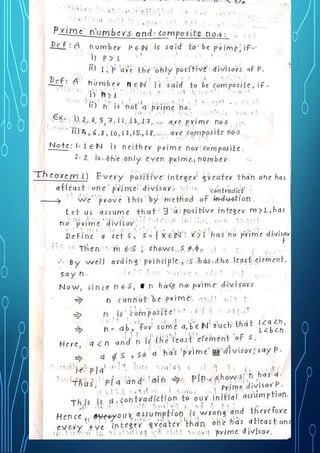 Prime numbers and composite no.s :
Def : A number P ∈ N is said to be prime, if -
i) P > 1
ii) 1, P are the only positive divisors of P.
Def : A number n ∈ N is said to be composite, if -
i) n > 1
ii) n is not a prime no.
Ex- i) 2, 3, 5, 7, 11, 13, 17, ... are prime nos
ii) 4, 6, 8, 10, 12, 15, 18, .... are composite nos
Note: 1. 1 ∈ N is neither prime nor composite.
2. 2 is the only even prime number
Theorem 1) Every positive integer greater than one has
atleast one prime divisor.
contradict
→ We prove this by method of induction.
Let us assume that ∃ a positive integer m > 1, has
no prime divisor.
Define a set S, S = { x ∈ N : x > 1 has no prime divisor
}
Then m ∈ S ; shows S ≠ ϕ.
∴ By well ording principle, S has the least element,
say n.
Now, since n ∈ S, n has no prime divisors
⇒ n cannot be prime
⇒ n is composite
⇒ n = ab, for some a, b ∈ N such that 1 < a < n,
1 < b < n
Here, a < n and n is the least element of S.
⇒ a ∉ S, so a has prime divisor, say P.
ie P|a
Thus, P|a and a|n ⇒ P|n, shows n has a
prime divisor P.
This is a contradiction to our initial assumption.
Hence, our assumption is wrong and therefore
every +ve integer greater than one has atleast one
prime divisor.